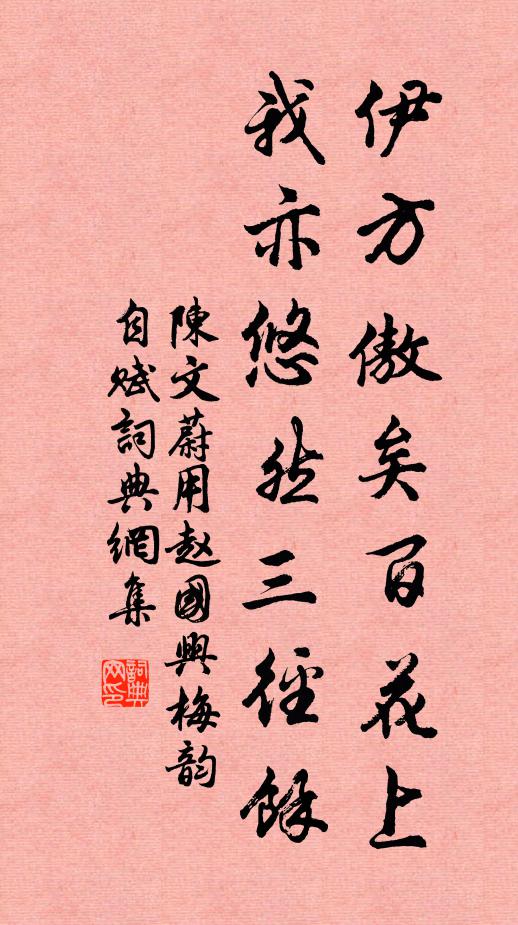 伊方傲矣百花上
我亦悠然三径餘
陳文蔚用赵國興梅韵
自赋詞典網集
詞典网印